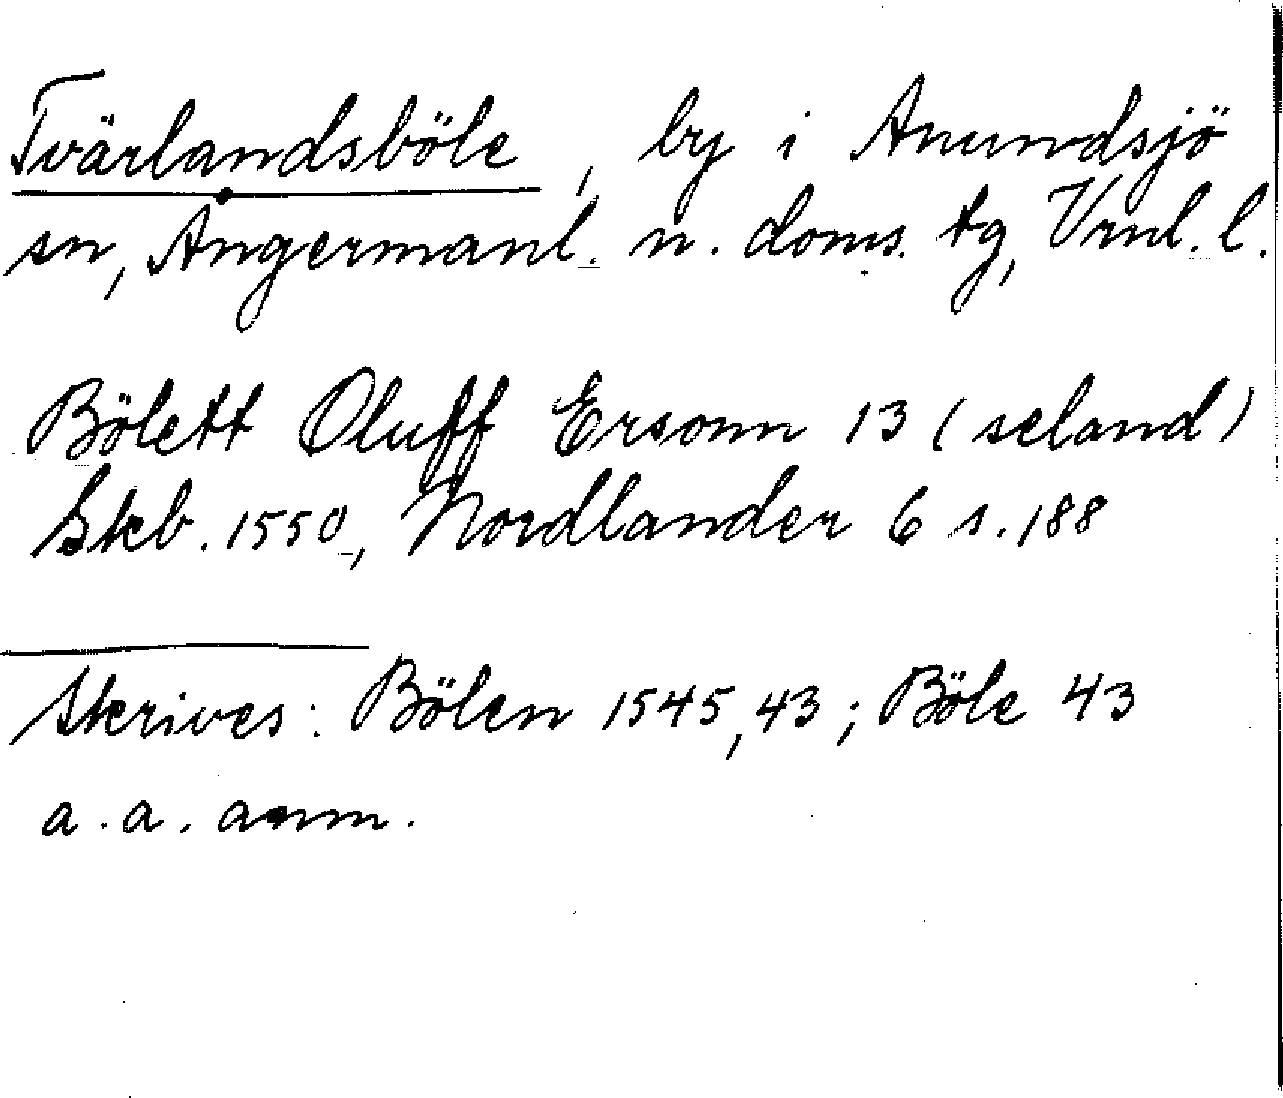 Tvärlandsböle, by i Anundsjö
sn, Ångermanl. n. doms. tg, Vrnl. l.
Bölett Oluff Ersonn 13 (seland)
Skb. 1550, Nordlander 6 s. 188
Skrives: Bölen 1545, 43; Böle 43
a. a. anm.